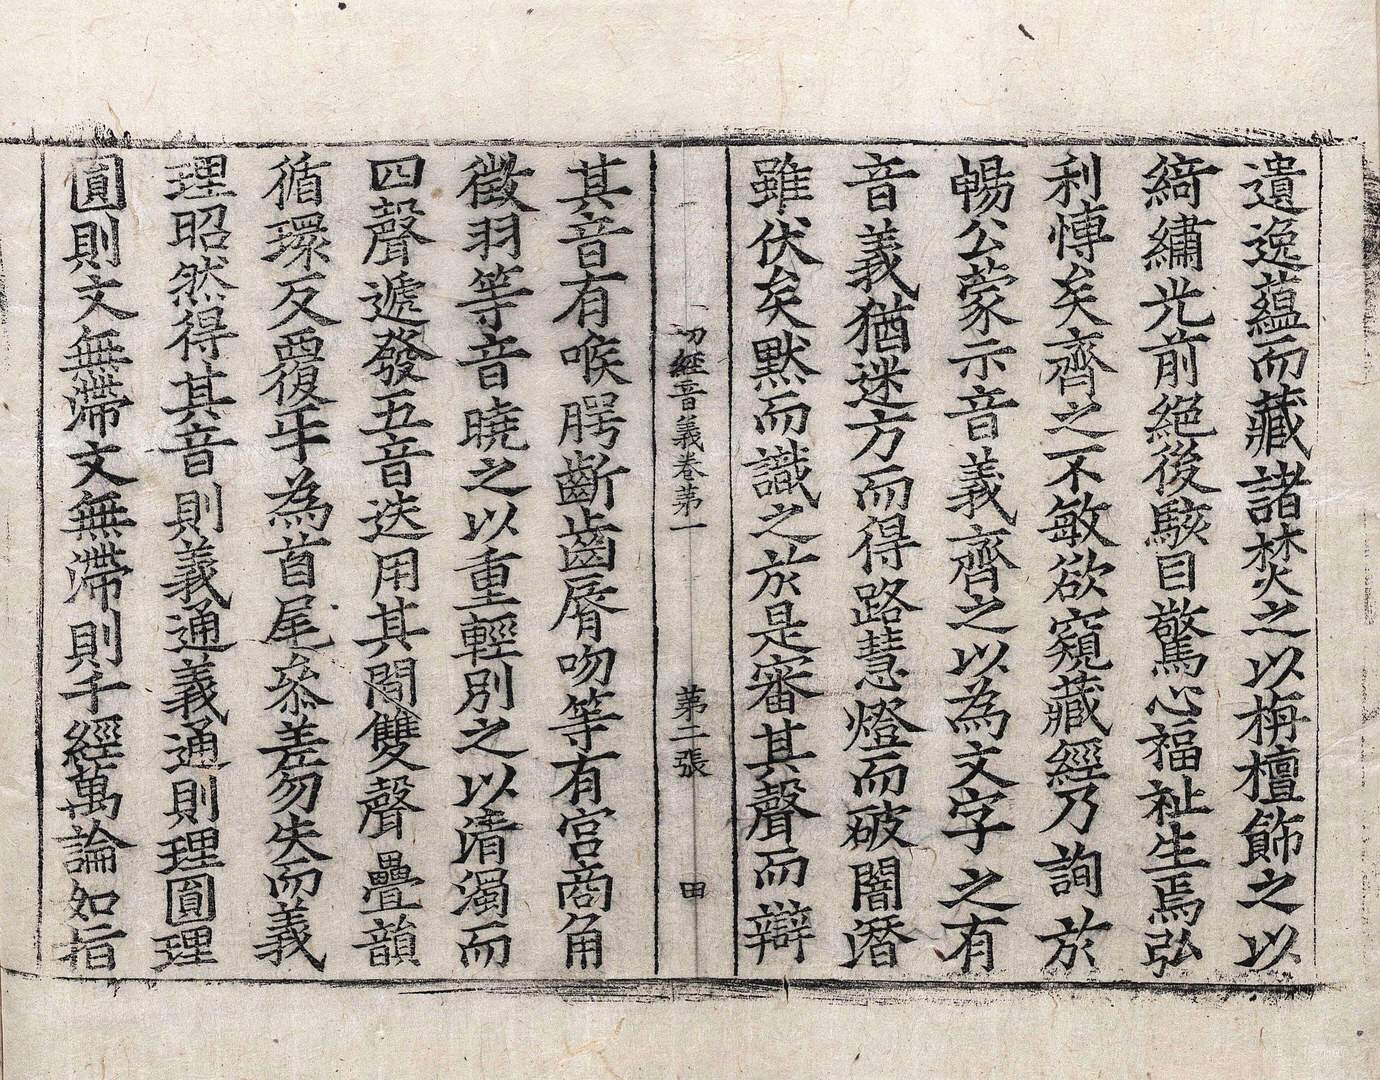 遺逸蘊而藏諸焚之以栴檀飾之以
綺繡光前絕後駭目驚心福祉生焉弘
利慱矣齊之不敏欲窺藏經乃詢於
暢公蒙示音義齊之以為文字之有
音義猶迷方而得路慧燈而破闇潛
雖伏矣默而識之於是審其聲而辯
一切經音義卷第一 第二張 田
其音有喉腭齗齒脣吻等有宮商角
徵羽等音曉之以重輕別之以清濁而
四聲遞發五音迭用其閒雙聲疊韻
循環反覆互為首尾叅差勿失而義
理昭然得其音則義通義通則理圓理
圓則文無滯文無滯則千經萬論如指